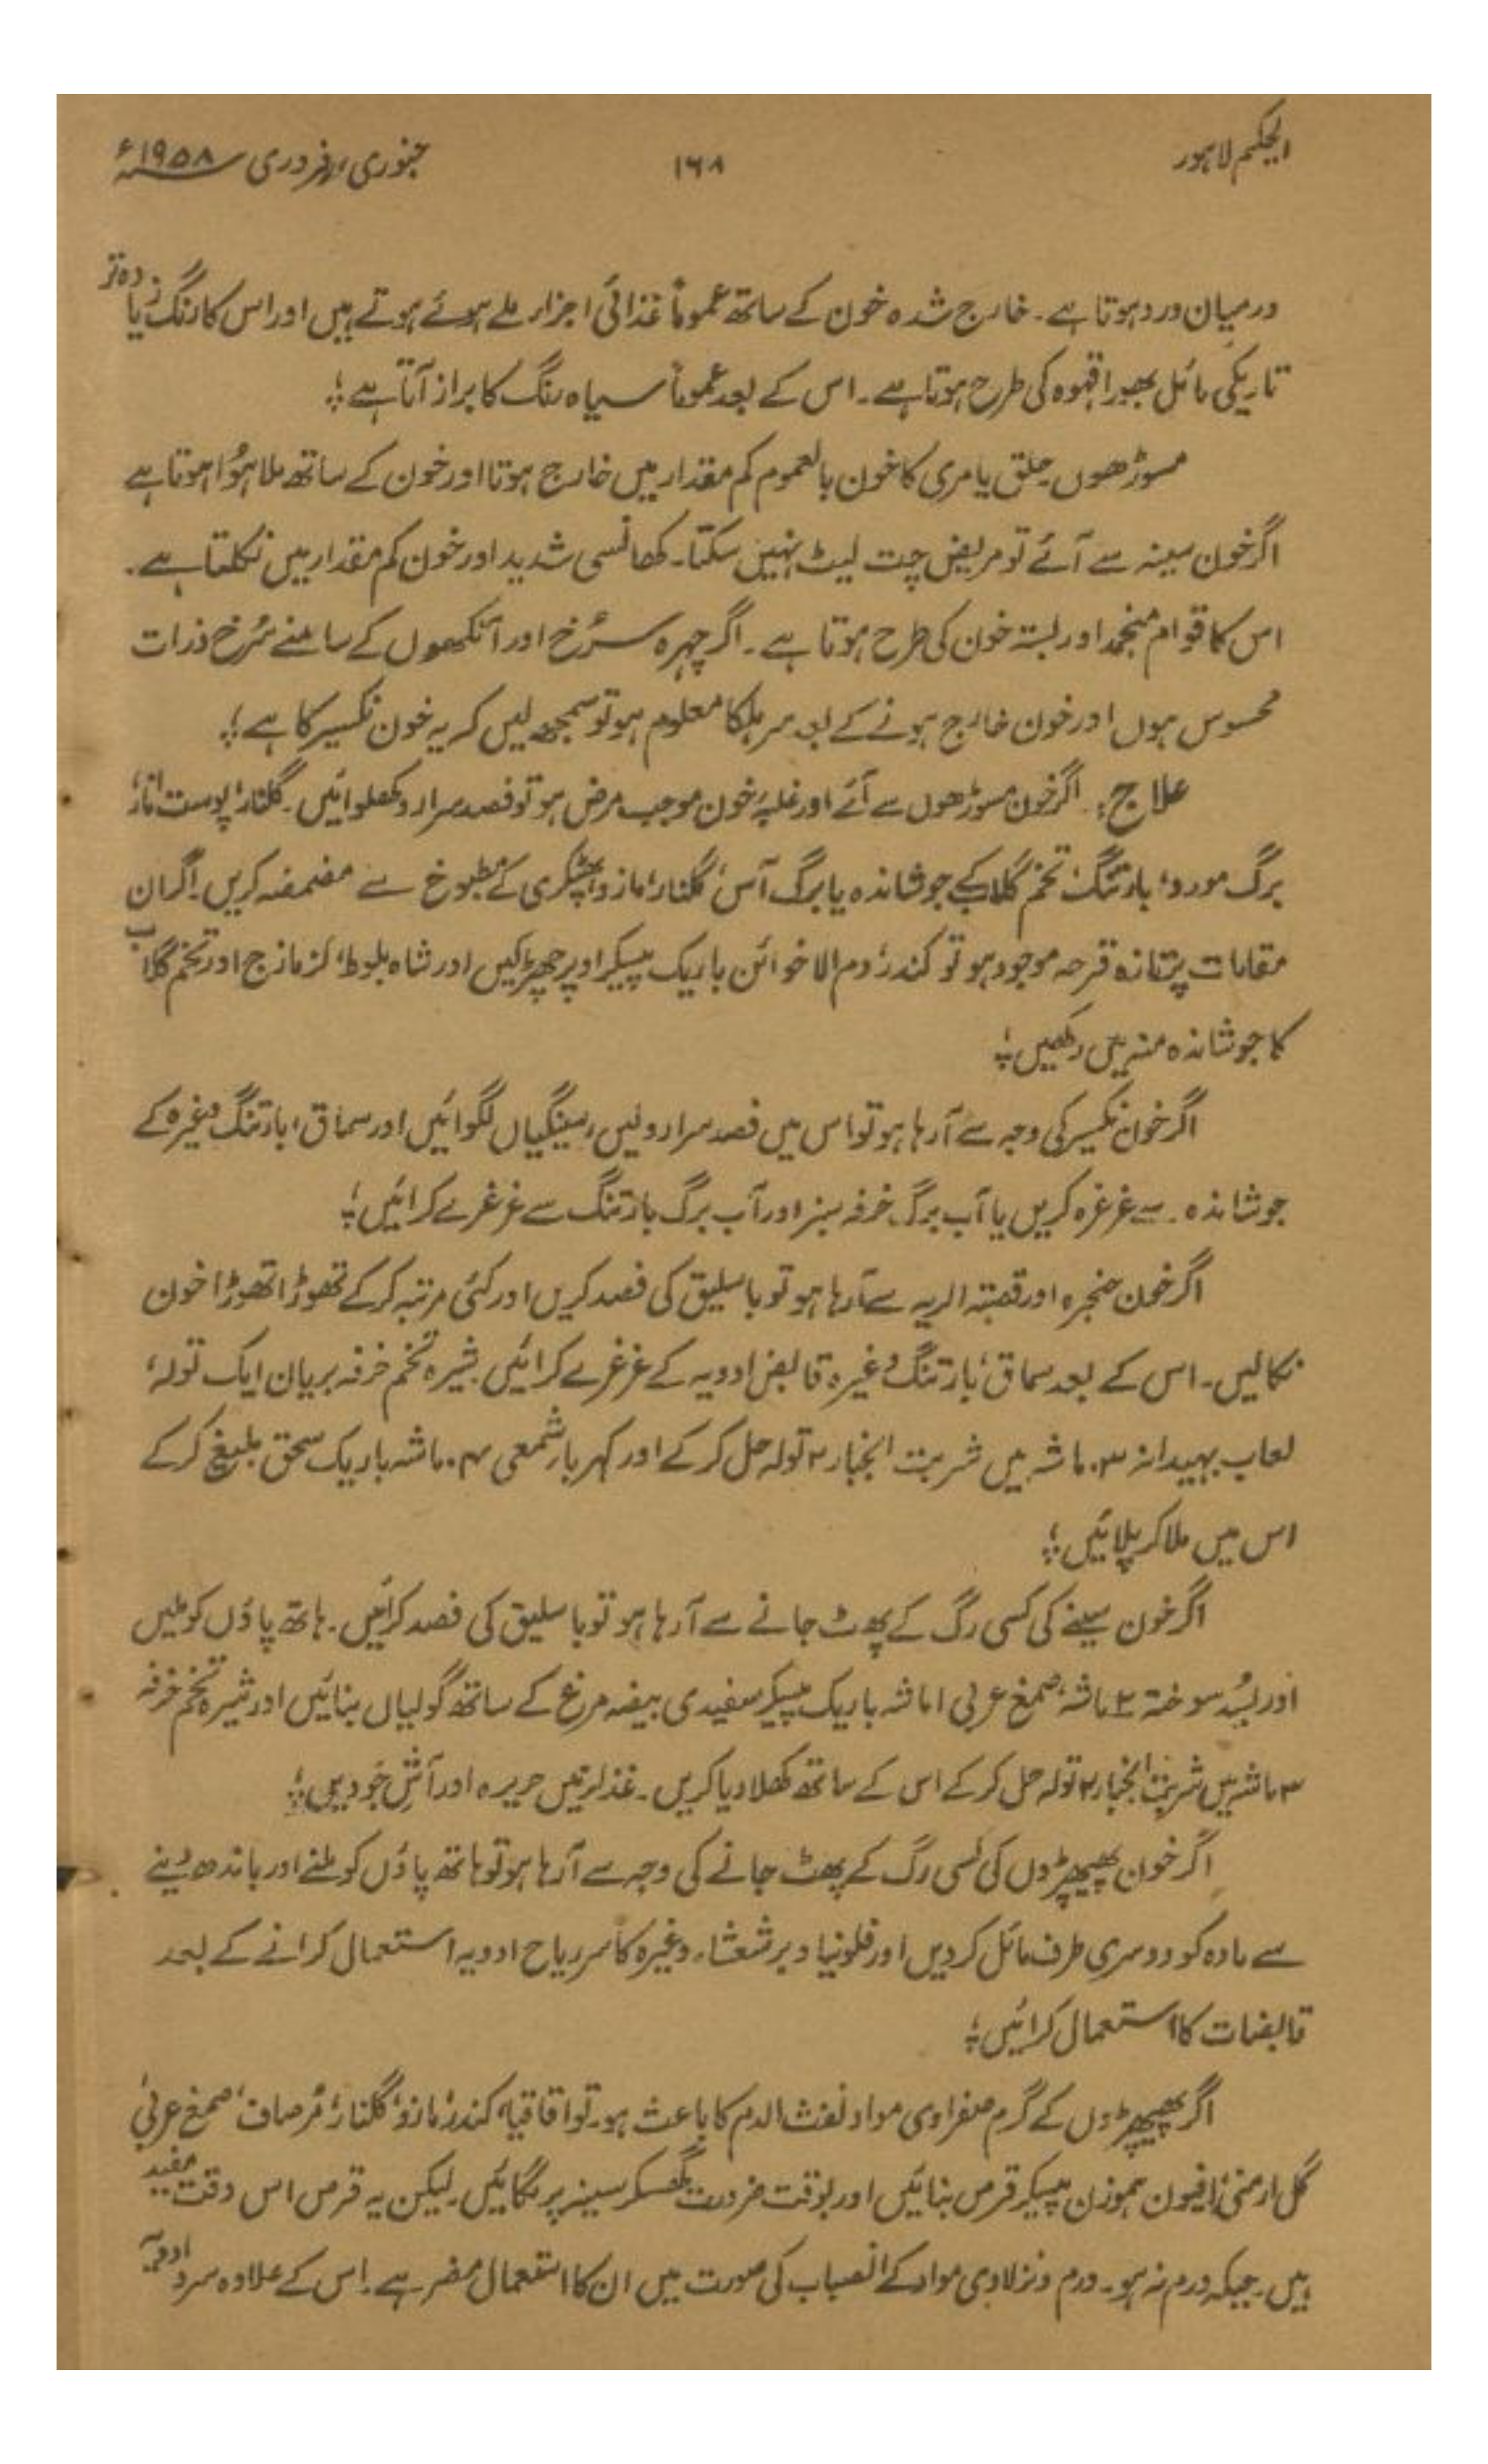 الحکیم لاہور ۱۶۸ جنوری، فروری ۱۹۵۸ء
درمیان درد ہوتا ہے۔ خارج شدہ خون کے ساتھ عموماً غذائی اجزاء ملے ہوئے ہوتے ہیں اور اس کا رنگ زیادہ تر
تاریکی مائل بھورا قہوہ کی طرح ہوتا ہے۔ اس کے بعد عموماً سیاہ رنگ کا براز آتا ہے؛
مسوڑھوں حلق یا مری کا خون بالعموم کم مقدار میں خارج ہوتا اور خون کے ساتھ ملا ہوُا ہوتا ہے
اگر خون سینہ سے آئے تو مریض چت لیٹ نہیں سکتا۔ کھانسی شدید اور خون کم مقدار میں نکلتا ہے۔
اس کا قوام منجمد اور بستہ خون کی طرح ہوتا ہے۔ اگر چہرہ سُرخ اور آنکھوں کے سامنے سُرخ ذرات
محسوس ہوں اور خون خارج ہونے کے بعد سر ہلکا معلوم ہو تو سمجھ لیں کہ یہ خون نکسیر کا ہے؛
علاج: اگر خون مسوڑھوں سے آئے اور غلبۂ خون موجب مرض ہو تو فصد سرارو کھلوائیں۔ گلنار، پوست انار،
برگ مورد، بارتنگ، تخم گلاب کے جوشاندہ یا برگ آس، گلنار، مازو، پھٹکری کے مطبوخ سے مضمضہ کریں۔ اگر ان
مقامات پر تازہ قرحہ موجود ہو تو کندر، دم الاخوائن باریک پیسکر اوپر چھڑکیں اور شاہ بلوط، کزمازج اور تخم گلاب
کا جوشاندہ منہ میں رکھیں؛
اگر خون نکسیر کی وجہ سے آرہا ہو تو اس میں فصد سرارو لیں، سینگیاں لگوائیں اور سماق، بارتنگ وغیرہ کے
جوشاندہ سے غرغرہ کریں یا آب برگ خرفہ سبز اور آب برگ بارتنگ سے غرغرے کرائیں؛
اگر خون حنجرہ اور قصبتہ الریہ سے آرہا ہو تو باسلیق کی فصد کریں اور کئی مرتبہ کرکے تھوڑا تھوڑا خون
نکالیں۔ اس کے بعد سماق، بارتنگ وغیرہ قابض ادویہ کے غرغرے کرائیں شیرہ تخم خرفہ بریان ایک تولہ،
لعاب بہیدانہ ۳ ماشہ میں شربت انجبار ۲ تولہ حل کرکے اور کہربا شمعی ۴ ماشہ باریک سحق بلیغ کرکے
اس میں ملا کر پلائیں؛
اگر خون سینے کی کسی رگ کے پھٹ جانے سے آرہا ہو تو باسلیق کی فصد کرائیں۔ ہاتھ پاؤں کو ملیں
اور بسُد سوختہ ۲ ماشہ، صمغ عربی ا ماشہ باریک پیسکر سفیدی بیضہ مرغ کے ساتھ گولیاں بنائیں اور شیرہ تخم خرفہ
۳ ماشہ میں شربت انجبار ۲ تولہ حل کرکے اس کے ساتھ کھلا دیا کریں۔ غذا میں حریرہ اور آشِ جَو دیں؛
اگر خون پھیپھڑوں کی کسی رگ کے پھٹ جانے کی وجہ سے آرہا ہو تو ہاتھ پاؤں کو ملنے اور باندھ دینے
سے مادہ کو دوسری طرف مائل کردیں اور فلونیا و برشعشاء وغیرہ کاسر ریاح ادویہ استعمال کرانے کے بعد
قابضات کا استعمال کرائیں؛
اگر پھیپھڑوں کے گرم صفراوی مواد نفث الدم کا باعث ہو۔ تو اقاقیا، کندر، مازو، گلنار، مُرصاف، صمغ عربی
گل ارمنی، افیون ہموزن پیسکر قرص بنائیں اور بوقت ضرورت گھسکر سینہ پر لگائیں۔ لیکن یہ قرص اس وقت مفید
ہیں۔ جبکہ ورم نہ ہو۔ ورم و نزلاوی مواد کے انصباب کی صورت میں ان کا استعمال مضر ہے۔ اس کے علاوہ سرد ادویہ